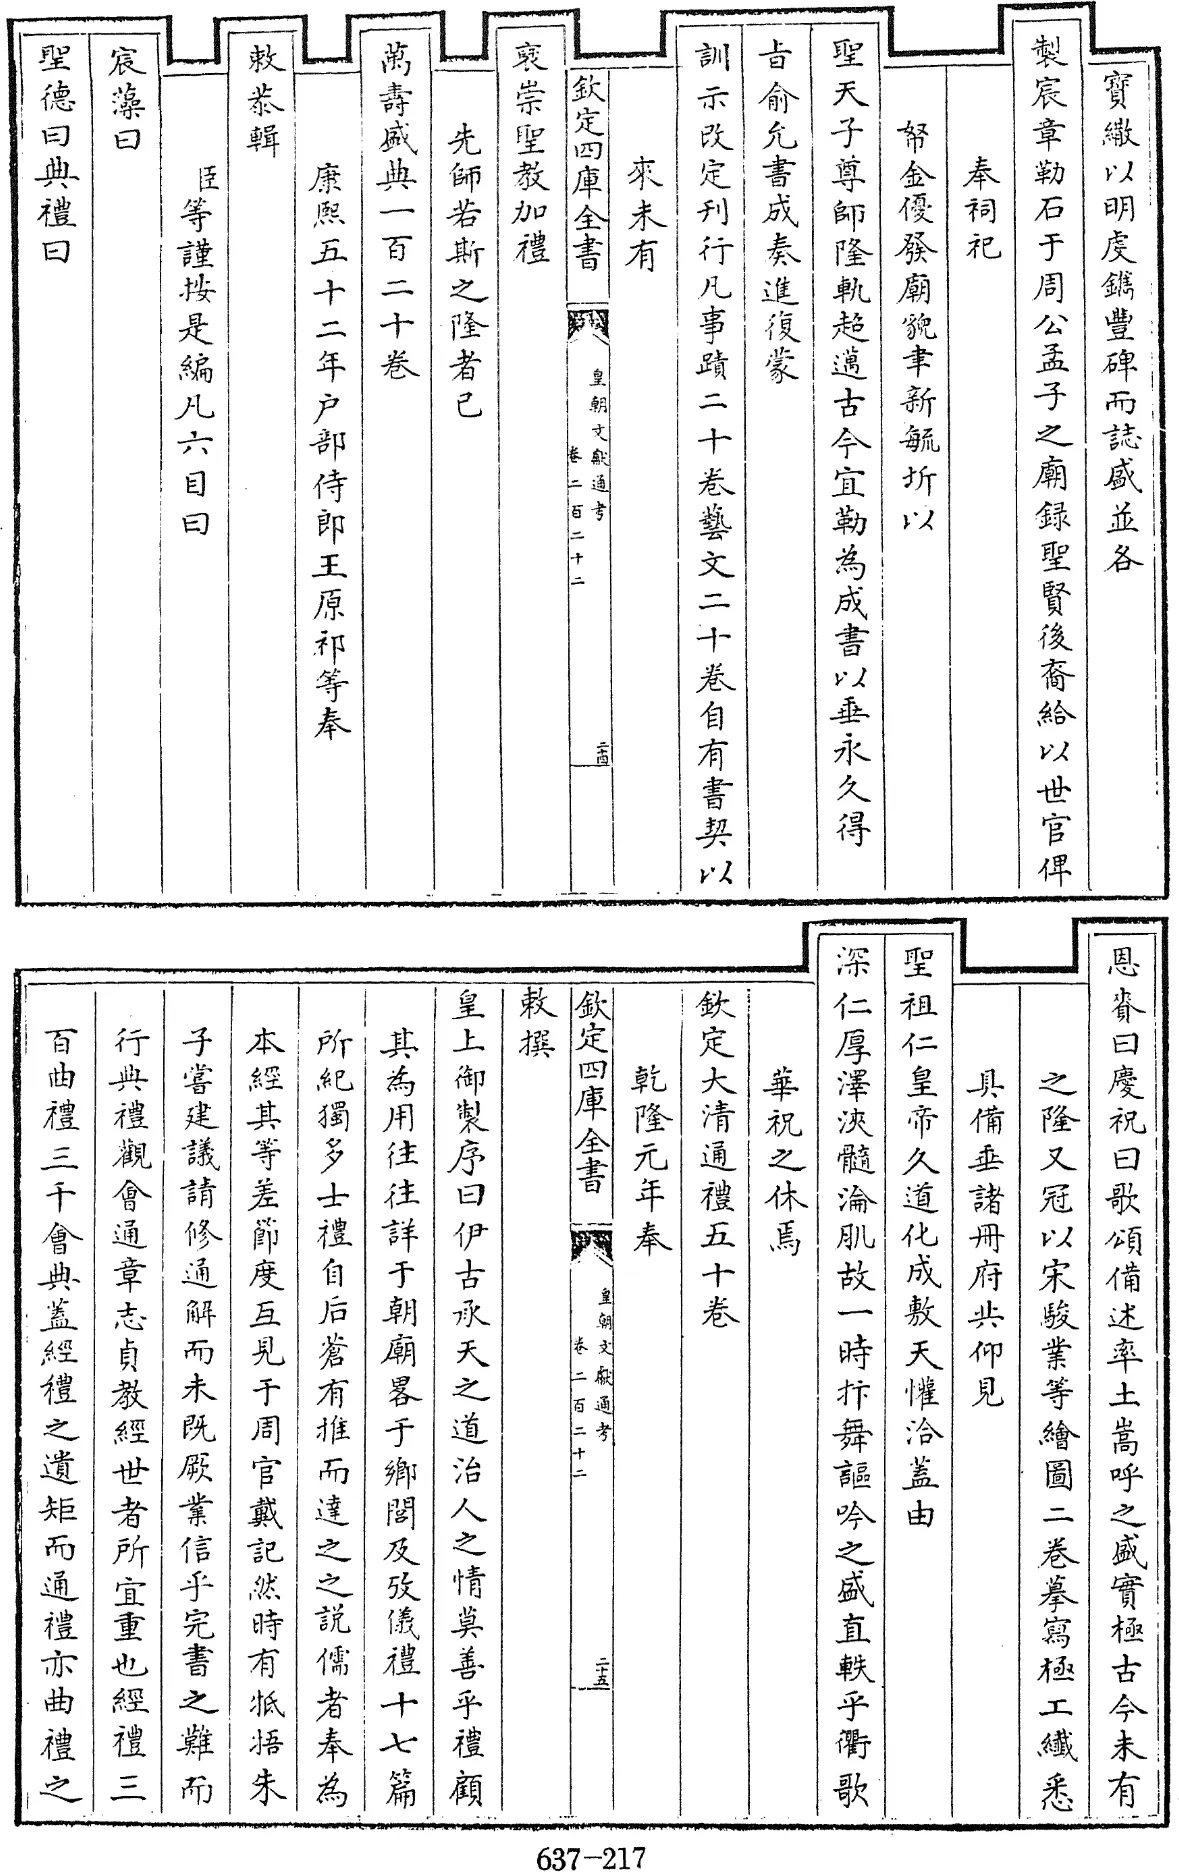 寳繖以明虔鐫豐碑而誌盛並各
製宸章勒石于周公孟子之廟録聖賢後裔給以世官俾
奉祠祀
帑金優發廟貌聿新毓圻以
聖天子尊師隆軌超邁古今宜勒為成書以垂永久得
㫖俞允書成奏進復蒙
訓示改定刋行凡事蹟二十卷藝文二十卷自有書契以
來未有
欽定四庫全書
皇朝文獻通考
卷二百二十二
二十四
襃崇聖教加禮
先師若斯之隆者已
萬壽盛典一百二十卷
康熙五十二年户部侍郎王原祁等奉
敕恭輯
臣等謹按是編凡六目曰
宸藻曰
聖德曰典禮曰
恩賚曰慶祝曰歌頌備述率土嵩呼之盛實極古今未有
之隆又冠以宋駿業等繪圖二卷摹寫極工纖悉
具備垂諸冊府共仰見
聖祖仁皇帝久道化成敷天懽洽蓋由
深仁厚澤浹髓淪肌故一時抃舞謳吟之盛直軼乎衢歌
華祝之休焉
欽定大清通禮五十卷
乾隆元年奉
欽定四庫全書
皇朝文獻通考
卷二百二十二
二十五
敕撰
皇上御製序曰伊古承天之道治人之情莫善乎禮顧
其為用往往詳于朝廟畧于鄉閭及攷儀禮十七篇
所紀獨多士禮自后蒼有推而達之之説儒者奉為
本經其等差節度互見于周官戴記然時有牴牾朱
子嘗建議請修通解而未既厥業信乎完書之難而
行典禮觀會通章志貞教經世者所宜重也經禮三
百曲禮三千會典蓋經禮之遺矩而通禮亦曲禮之
637-217